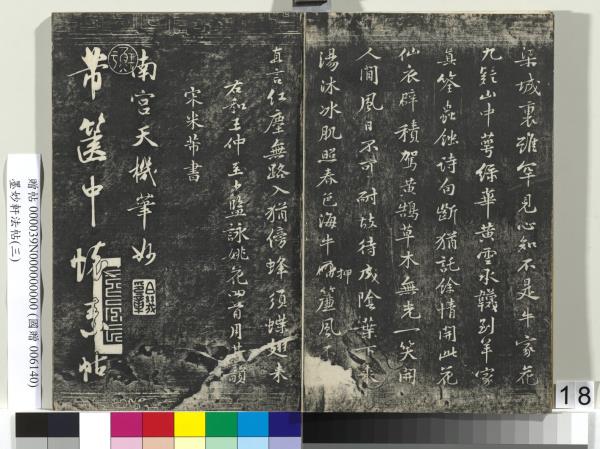 梁城裏誰罕見心知不是牛家花
九疑山中萼綠華黄雲承韈到羊家
真筌蟲蝕詩句斷猶託餘情開此花
仙衣襞積駕黄鵠草木無光一笑開
人間風日不可耐故待成陰葉下來
湯沐冰肌照春色海牛押簾風不
直言紅塵無路入猶傍蜂須蝶翅來
右和王仲至少監詠姚花四首用其韻
宋米芾書
南宮天機筆妙
芾篋中帖
贈帖 000039N000000000 (國贈 006140)
墨妙軒法帖(三)
18